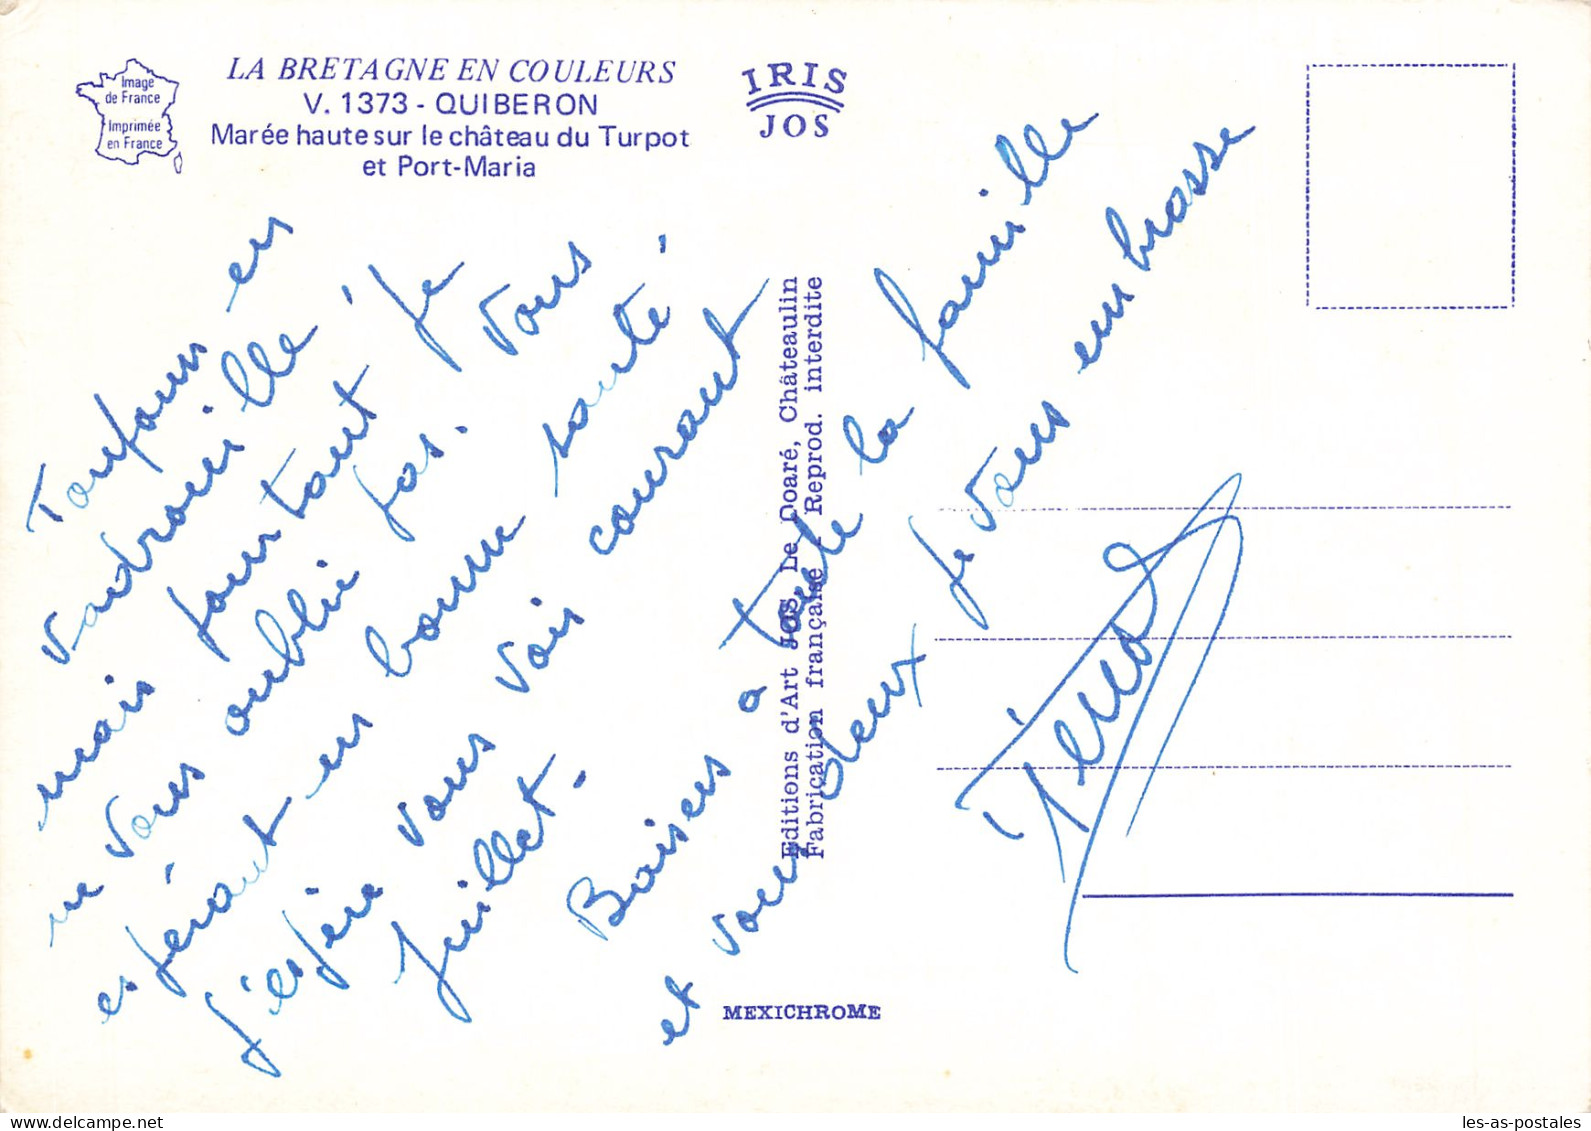 Image
de France
Imprimée
en France
LA BRETAGNE EN COULEURS
V. 1373 - QUIBERON
Marée haute sur le château du Turpot
et Port-Maria
IRIS
JOS
Toujours en
vadrouille !
mais pourtant je
ne vous oublie pas. Vous
espérant en bonne santé.
J'espère vous voir courant
juillet.
Baisers a toute la famille
et vous deux je vous embrasse
Editions d'Art JOS Le Doaré, Châteaulin
Fabrication française - Reprod. interdite
MEXICHROME
les-as-postales